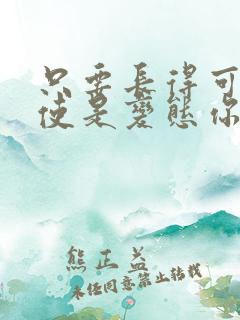 只要长得可
使是变态你
熊正益
未经同意禁止转载